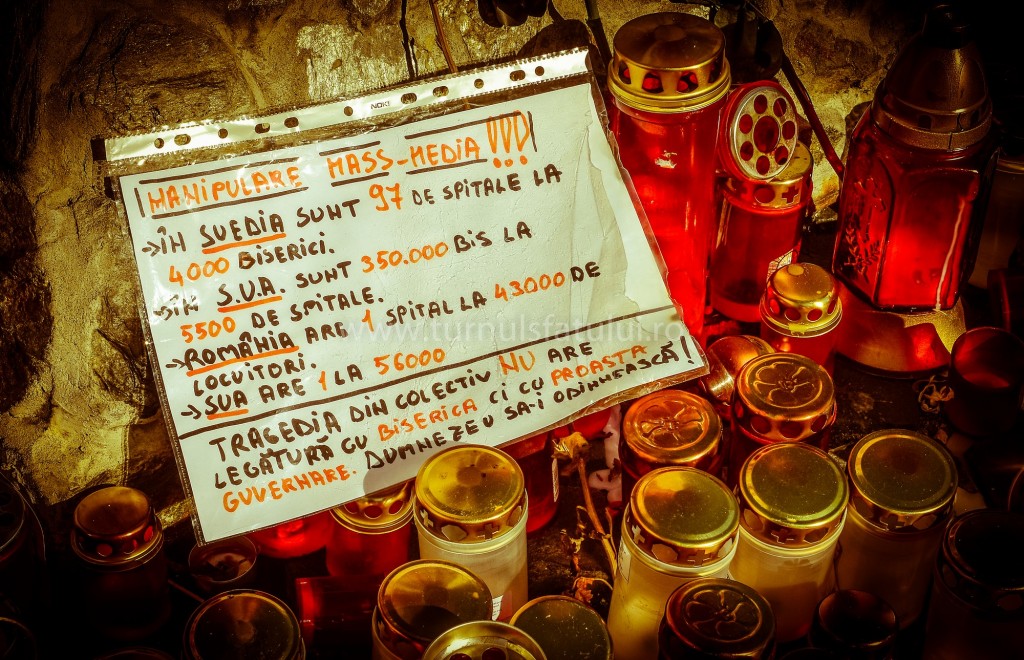 NOKI
MANIPULARE MASS-MEDIA !!!
→ÎN SUEDIA SUNT 97 DE SPITALE LA
4000 BISERICI.
→ÎN S.U.A. SUNT 350.000 BIS LA
5500 DE SPITALE.
→ROMÂNIA ARE 1 SPITAL LA 43000 DE
LOCUITORI.
→SUA ARE 1 LA 56000
TRAGEDIA DIN COLECTIV NU ARE
LEGĂTURĂ CU BISERICA CI CU PROASTA
GUVERNARE. DUMNEZEU SA-I ODIHNEASCĂ!
www.turnulsfatului.ro